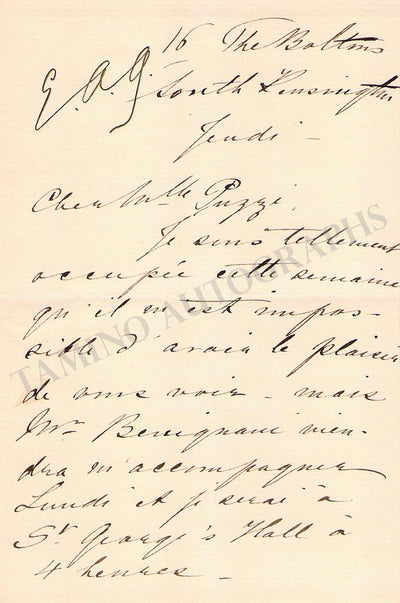 16 The Boltons
E.A.G. South Kensington
Jeudi –
Chère Mlle Puzzi,
Je suis tellement
occupée cette semaine
qu'il m'est impos-
sible d'avoir le plaisir
de vous voir – mais
Mr Bevignani vien-
dra m'accompagner
Lundi et je serai à
St George's Hall à
4 heures –
TAMINO AUTOGRAPHS